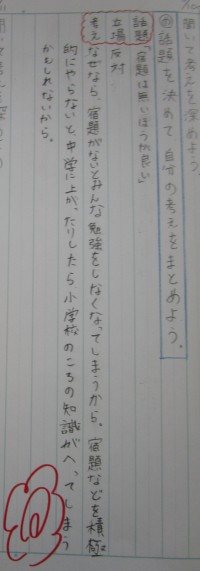 聞いて考えを深めよう。
め話題を決めて自分の考えをまとめよう。
話題「宿題は無いほうが良い」
立場 反対
考え なぜなら、宿題がないとみんな勉強をしなくなってしまうから。宿題などを積極
的にやらないと、中学に上がったりしたら小学校のころの知識がへってしまう
かもしれないから。